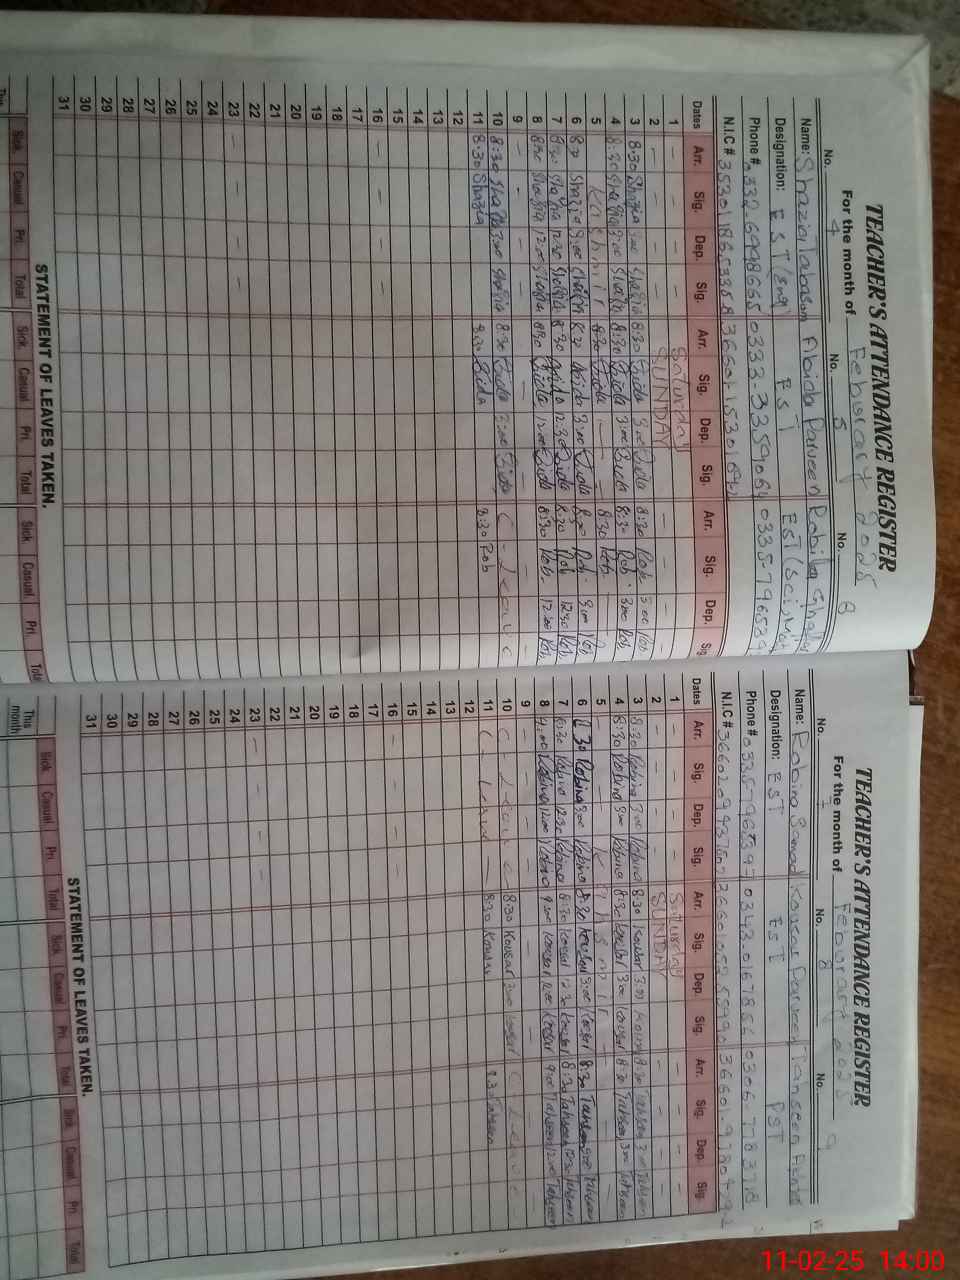 TEACHER'S ATTENDANCE REGISTER
For the month of Feborary 2025
No. 4 No. 5 No. 8
Name: Shazia Tabasm Abida Parveen Robila
Designation: EST (Eng) EST EST (Sci, Math
Phone # 0332-6998655 0333-3359064
N.I.C #
Dates Arr. Sig. Dep. Sig. Arr. Sig. Dep. Sig. Arr. Sig. Dep. Sig
1 — — — — Saturday — — — —
2 — — — — SUNDAY — — — —
3 8:30 Shazia 3:00 Shazia 8:30 Abida 3:00 Abida 8:30 Rob. 3:00 Rob
4 8:30 Shazia 3:00 Shazia 8:30 Abida 3:00 Abida 8:30 Rob. 3:00 Rob.
5 Kashmir 8:30 Abida — — 8:30 Rob. —
6 8:30 Shazia 3:00 Shazia 8:30 Abida 3:00 Abida 8:30 Rob. 3:00 Rob.
7 8:30 Shazia 12:30 Shazia 8:30 Abida 12:30 Abida 8:30 Rob 12:30 Rob.
8 8:30 Shazia 12:00 Shazia 8:30 Abida 12:00 Abida 8:30 Rob. 12:00 Rob.
9 — — — — — — — —
10 8:30 Shazia 3:00 Shazia 8:30 Abida 3:00 Abida C - Leave
11 8:30 Shazia 8:30 Abida 8:30 Rob
12
13
14
15
16 — — — —
17
18
19
20
21
22
23 — — — —
24
25
26
27
28
29
30
31
STATEMENT OF LEAVES TAKEN.
Sick. Casual Pri. Total Sick. Casual. Pri. Total Sick Casual. Pri. Total
TEACHER'S ATTENDANCE REGISTER
For the month of Feborary 2025
No. 7 No. 8 No. 9
Name: Robina Samad Kousar Parveen Tahseen
Designation: EST EST PST
Phone #
N.I.C #
Dates Arr. Sig. Dep. Sig. Arr. Sig. Dep. Sig. Arr. Sig. Dep. Sig.
1 — — — — Saturday — — — —
2 — — — — SUNDAY — — — —
3 8:30 Robina 3:00 Robina 8:30 Kousar 3:00 Kousar 8:30 Tahseen 3:00 Tahseen
4 8:30 Robina 3:00 Robina 8:30 Kousar 3:00 Kousar 8:30 Tahseen 3:00 Tahseen
5 — — Kashmir — —
6 8:30 Robina 3:00 Robina 8:30 Kousar 3:00 Kousar 8:30 Tahseen 3:00 Tahseen
7 8:30 Robina 12:30 Robina 8:30 Kousar 12:30 Kousar 8:30 Tahseen 12:30 Tahseen
8 9:00 Robina 12:00 Robina 9:00 Kousar 12:00 Kousar 9:00 Tahseen 12:00 Tahseen
9 — — — — — — — —
10 C - Leave 8:30 Kousar 3:00 Kousar C - Leave
11 C - Leave 8:30 Kousar 8:30 Tahseen
12
13
14
15
16 — — — —
17
18
19
20
21
22
23 — — — —
24
25
26
27
28
29
30
31
STATEMENT OF LEAVES TAKEN.
Sick Casual Pri. Total Sick Casual Pri. Total Sick Casual Pri. Total
This month
11-02-25 14:00